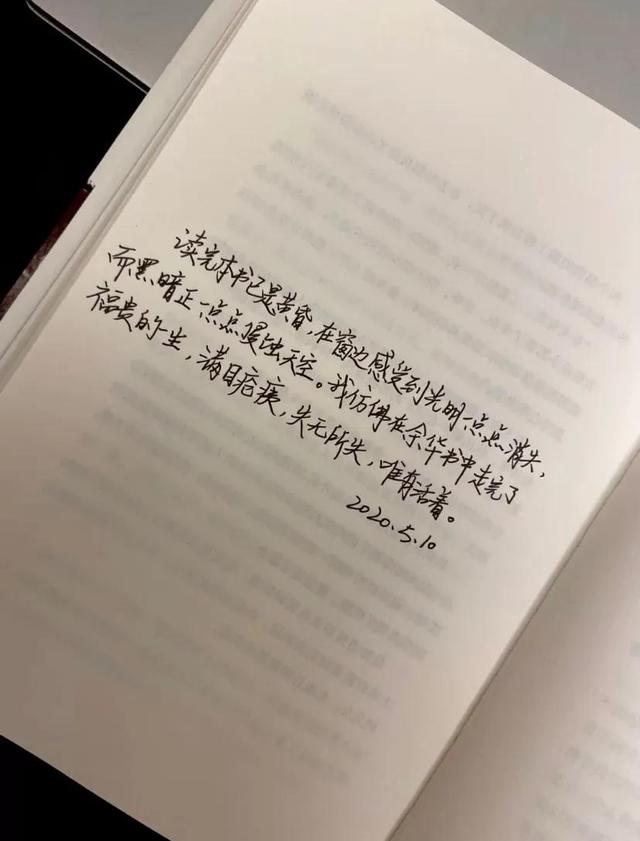 读完本书已是黄昏,在窗边感受到光明一点点消失,
而黑暗正一点点侵蚀天空。我仿佛在余华书中走完了
福贵的一生,满目疮痍,失无所失,唯有活着。
2020.5.10